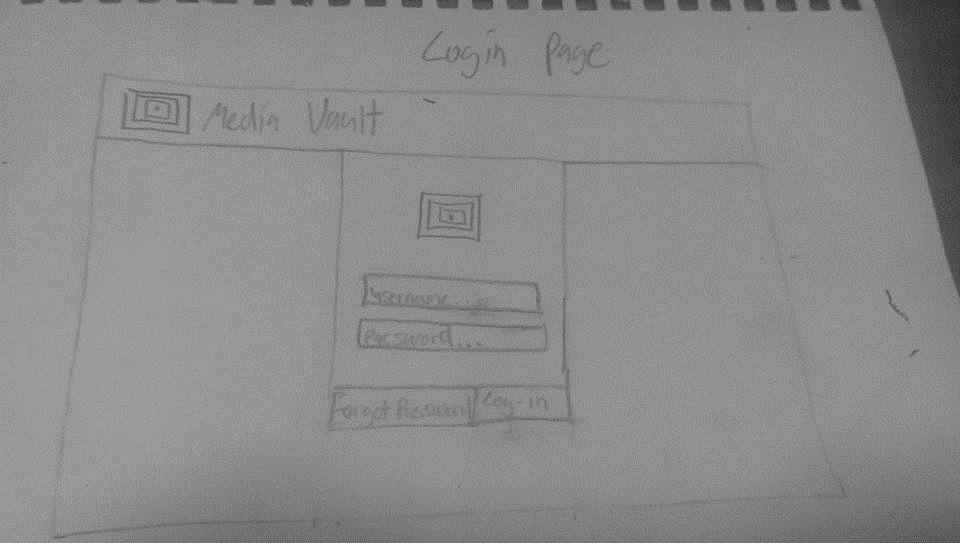 Login Page
Media Vault
Username...
Password...
Forgot Password
Log-in